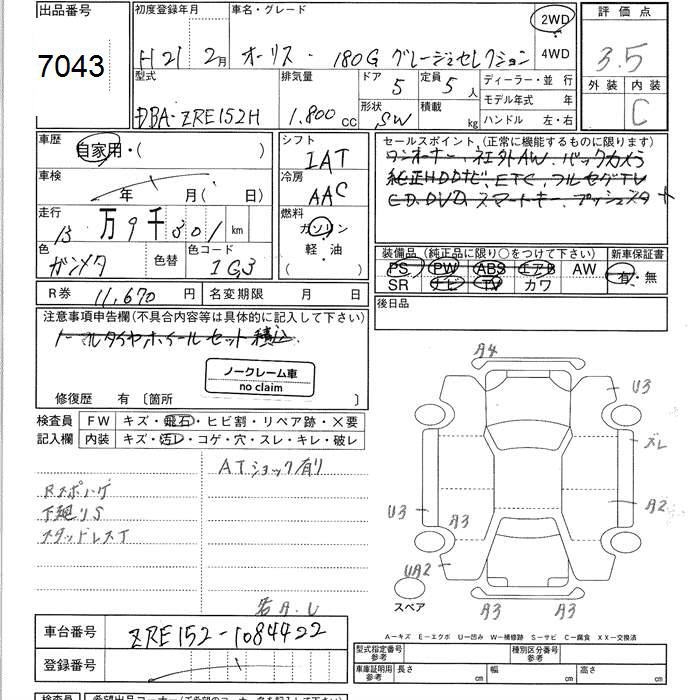 出品番号
7043
初度登録年月
H21 2月
車名・グレード
オーリス・ 180G グレージュセレクション
2WD
4WD
評価点
3.5
外装 内装
C
型式
DBA-ZRE152H
排気量
1.800 cc
ドア
5
定員
5人
形状
SW
積載
kg
ディーラー・並 行
モデル年式 年
ハンドル 左・右
車歴
自家用・( )
車検
年 月( 日)
走行
13万9千301km
色
ガンメタ
色替
色コード
1G3
シフト
IAT
冷房
AAC
燃料
ガソリン
軽・油
( )
セールスポイント(正常に機能するものに限ります)
ワンオーナー、社外AW、バックカメラ
純正HDDナビ、ETC、フルセグTV
CD、DVD、スマートキー、プッシュスタート
装備品(純正品に限り○をつけて下さい)
PS PW ABS エアB AW
SR ナビ TV カワ
新車保証書
有・無
R券 11,670円
名変期限 月 日
後日品
注意事項申告欄(不具合内容等は具体的に記入して下さい)
ノーマルタイヤホイールセット積込
ノークレーム車
no claim
修復歴 有〔箇所 〕
検査員
記入欄
FW キズ・飛石・ヒビ割・リペア跡・×要
内装 キズ・汚レ・コゲ・穴・スレ・キレ・破レ
ATショック有り
Rスポハゲ
下廻りS
スタッドレスT
若A.U
A4
U3
ズレ
U3
A3
A2
UA2
A3
A3
スペア
A-キズ E-エクボ U-凹み W-補修跡 S-サビ C-腐食 XX-交換済
車台番号 ZRE152-1084422
登録番号
型式指定番号
参考
種別区分番号
参考
車庫証明用
参考
長さ cm 幅 cm 高さ cm
検査員
希望出品コーナー(ご希望のコーナー名を記入して下さい)